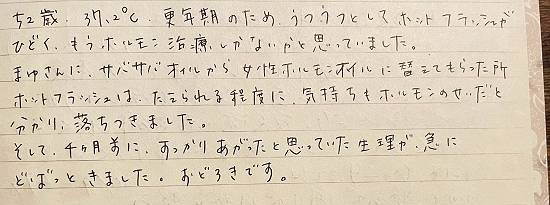 52歳. 37.2℃. 更年期のため、うつうつとしてホットフラッシュが
ひどく、もうホルモン治療しかないかと思っていました。
まゆさんに、サバサバオイルから、女性ホルモンオイルに替えてもらった所
ホットフラッシュは、たえられる程度に、気持ちもホルモンのせいだと
分かり、落ちつきました。
そして、4ヶ月前に、すっかりあがったと思っていた生理が、急に
どばっときました。おどろきです。